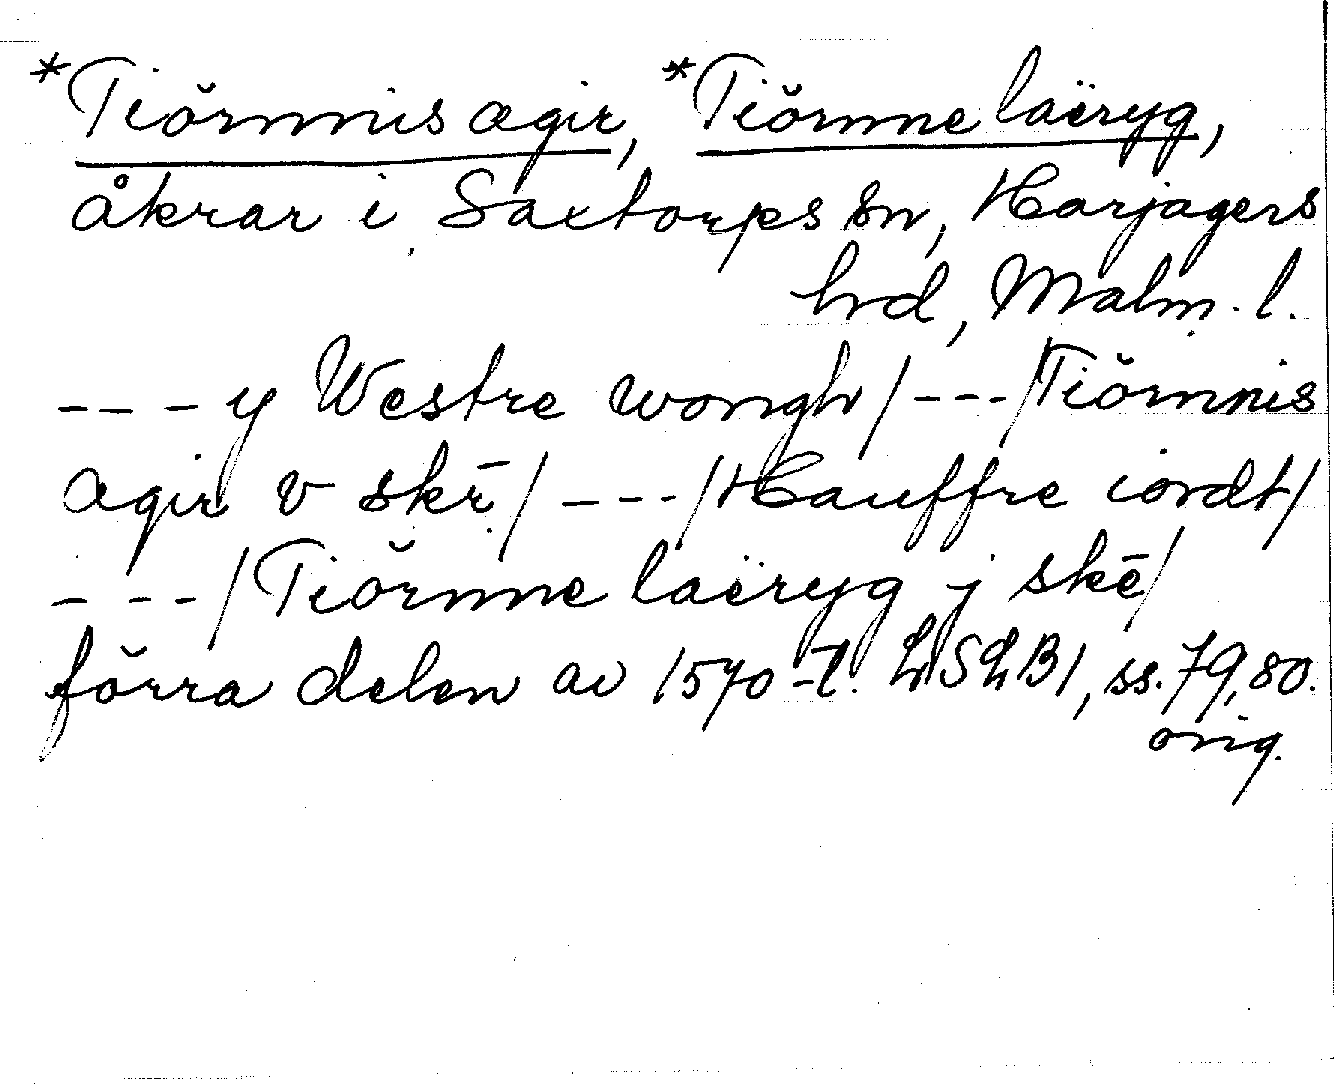 *Tiörnnis agir, *Tiörnne laëryg,
åkrar i Saxtorps sn, Harjagers
hrd, Malm. l.
--- y Westre wongh/---/Tiörnnis
agir v skē/---/Hauffre iordt/
---/Tiörnne laëryg j skē/
förra delen av 1570-t. LSLB1, ss. 79, 80.
orig.